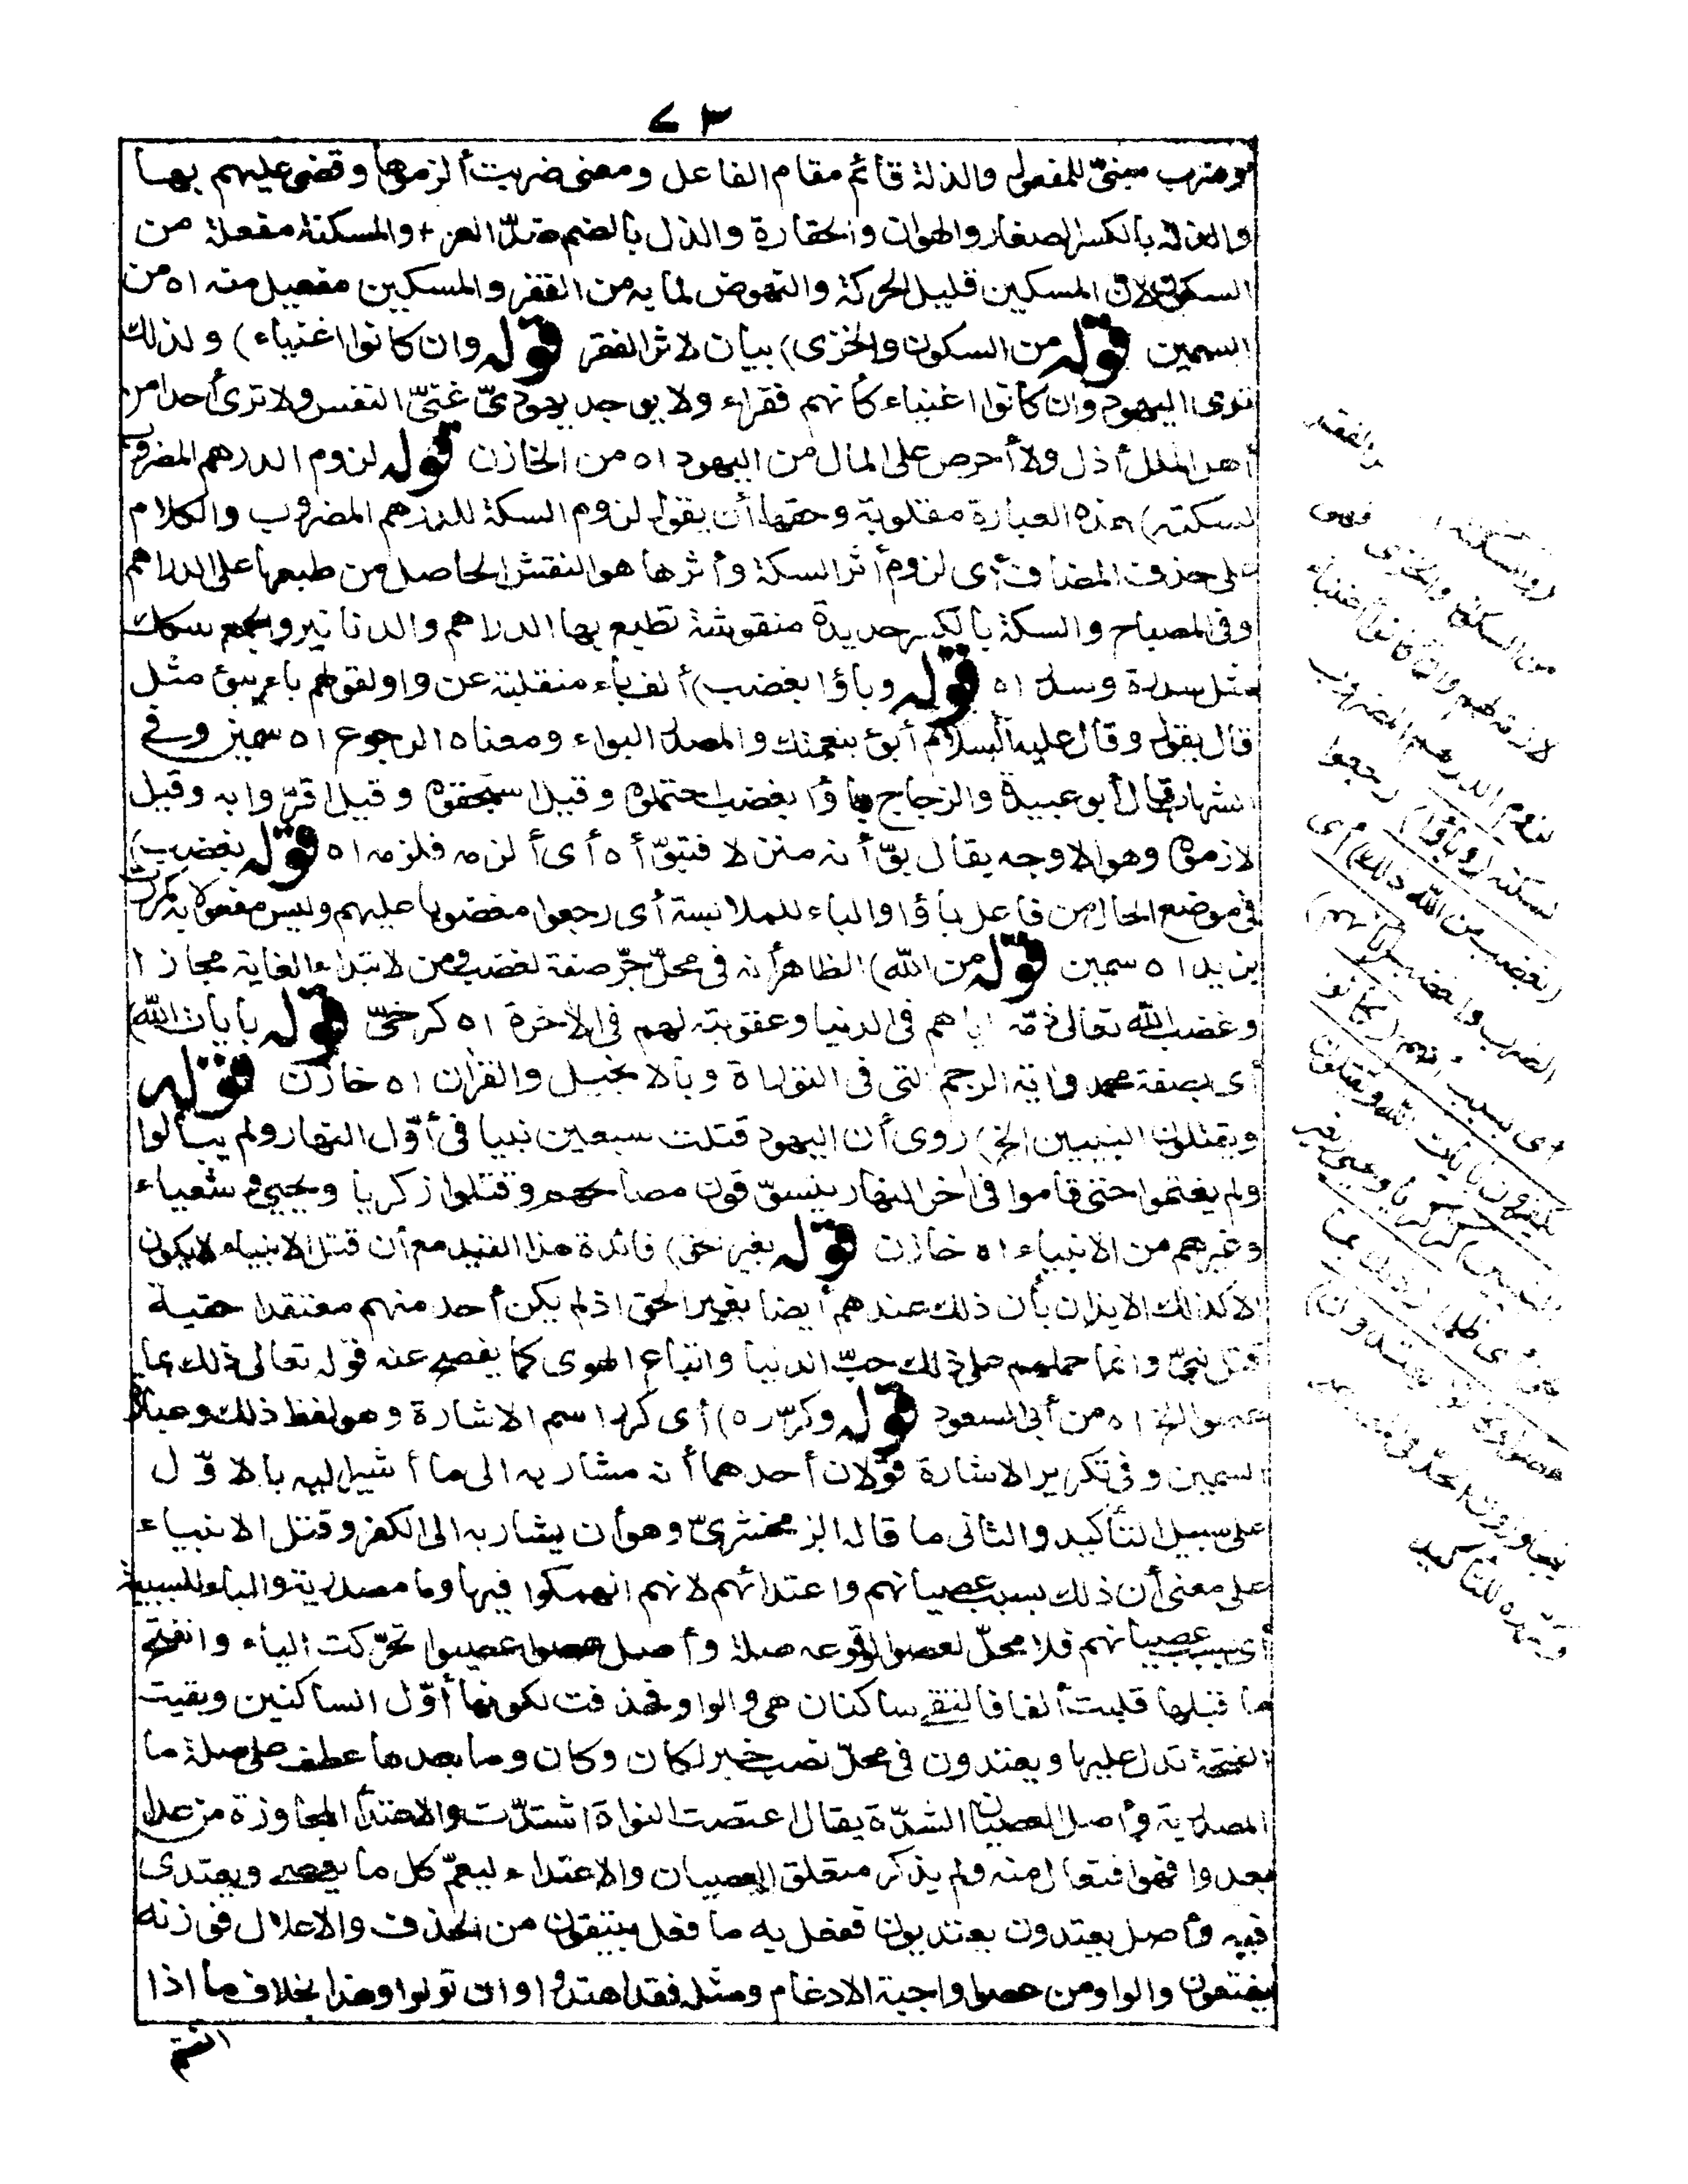 ٧٣
وضرب مبنىّ للمفعول والذلة قائم مقام الفاعل ومعنى ضربت ألزموها وقضى عليهم بها
والذلة بالكسر الصغار والهوان والحقارة والذل بالضم ضدّ العز + والمسكنة مفعلة من
السكون لان المسكين قليل الحركة والنهوض لما به من الفقر والمسكين مفعيل منه اه من
السمين قوله من السكون والخزى) بيان لاثر الفقر قوله وان كانوا اغنياء) ولذلك
ترى اليهود وان كانوا اغنياء كأنهم فقراء ولا يوجد يهودىّ غنىّ النفس ولا ترى أحدا من
أهل الملل أذل ولا أحرص على المال من اليهود اه من الخازن قوله لزوم الدرهم المضروب
لسكته) هذه العبارة مقلوبة وحقها أن يقول لزوم السكة للدرهم المضروب والكلام
على حذف المضاف أى لزوم أثر السكة وأثرها هو النقش الحاصل من طبعها على الدراهم
وفى المصباح والسكة بالكسر حديدة منقوشة تطبع بها الدراهم والدنانير والجمع سكك
مثل سدرة وسدر اه قوله وباؤا بغضب) ألف باء منقلبة عن واو لقولهم باء يبوئ مثل
قال يقول وقال عليه السلام أبوئ بنعمتك والمصدر البواء ومعناه الرجوع اه سمين وفى
الشهاب قال أبو عبيدة والزجاج باؤا بغضب احتملوه وقيل استحقوه وقيل اقرّوا به وقيل
لازموه وهو الاوجه يقال بوّأنه منزلا فتبوّأه أى ألزمه فلزمه اه قوله بغضب)
فى موضع الحال من فاعل باؤا والباء للملابسة أى رجعوا مغضوبا عليهم وليس مفعولا به كمررت
بزيد اه سمين قوله من الله) الظاهر أنه فى محلّ جرّ صفة لغضب ومن لابتداء الغاية مجازا
وغضب الله تعالى ذمّه اياهم فى الدنيا وعقوبته لهم فى الآخرة اه كرخىّ قوله بآيات الله)
أى بصفة محمد وآية الرجم التى فى التوراة وبالانجيل والقرآن اه خازن قوله
ويقتلون النبيين الخ) روى أن اليهود قتلت سبعين نبيا فى أوّل النهار ولم يبالوا
ولم يغتموا حتى قاموا فى آخر النهار يتسوّقون مصالحهم وقتلوا زكريا ويحيى وشعياء
وغيرهم من الانبياء اه خازن قوله بغير حق) فائدة هذا القيد مع أن قتل الانبياء لا يكون
الا كذلك الايذان بأن ذلك عندهم أيضا بغير الحق اذ لم يكن أحد منهم معتقدا حقية
قتل نبىّ وانما حملهم على ذلك حبّ الدنيا واتباع الهوى كما يفصح عنه قوله تعالى ذلك بما
عصوا الخ اه من أبى السعود قوله وكرّره) أى كرر اسم الاشارة وهو لفظ ذلك وعبارة
السمين وفى تكرير الاشارة قولان أحدهما أنه مشار به الى ما أشير اليه بالاوّل
على سبيل التأكيد والثانى ما قاله الزمخشرىّ وهو أن يشار به الى الكفر وقتل الانبياء
على معنى أن ذلك بسبب عصيانهم واعتدائهم لانهم انهمكوا فيها وما مصدرية والباء للسببية
أى بسبب عصيانهم فلا محلّ لعصوا لوقوعه صلة وأصل عصوا عصيوا تحرّكت الياء وانفتح
ما قبلها قلبت ألفا فالتقى ساكنان هى والواو فحذفت لكونها أوّل الساكنين وبقيت
الفتحة تدل عليها ويعتدون فى محلّ نصب خبر لكان وكان وما بعدها عطف على صلة ما
المصدرية وأصل العصيان الشدّة يقال اعتصت النواة اشتدّت والاعتداء المجاوزة من عدا
يعدو افهو افتعال منه ولم يذكر متعلق العصيان والاعتداء ليعمّ كل ما يعصى ويعتدى
فيه وأصل يعتدون يعتديون ففعل به ما فعل بيتقون من الحذف والاعلال فوزنه
يفتعون والواو من عصوا واجبة الادغام ومثله فقد اهتدوا وان تولوا وهذا بخلاف ما اذا
انضم
والفقر
(والمسكنة)
من السكون والخزى فهى
لازمة لهم وان كانوا أغنياء
لزوم الدرهم المضروب
لسكته (وباؤا) رجعوا
(بغضب من الله ذلك) أى
الضرب والغضب (بأنهم)
أى بسبب أنهم (كانوا
يكفرون بآيات الله ويقتلون
النبيين) كزكريا ويحيى (بغير
حق) أى ظلما (ذلك بما
عصوا وكانوا يعتدون)
يتجاوزون الحدّ فى المعاصى
وكرّره للتأكيد